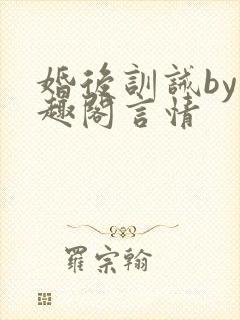 婚後訓誡by
趣閣言情
羅宗翰